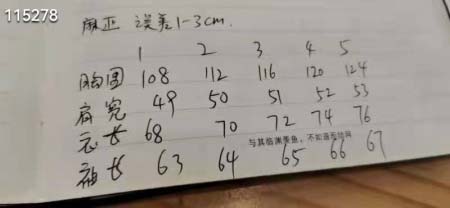 115278
麻正 误差1-3cm.
1 2 3 4 5
胸围 108 112 116 120 124
肩宽 49 50 51 52 53
衣长 68 70 72 74 76
与其临渊羡鱼,不如退而结网
袖长 63 64 65 66 67